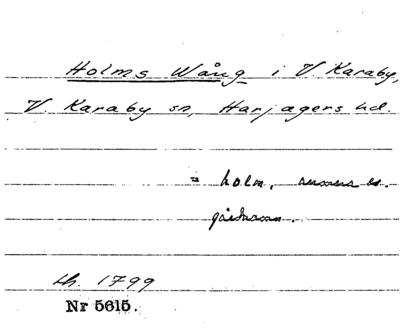 Holms Wång i V. Karaby,
V. Karaby sn, Harjagers hd.
= holm,
Lh. 1799
Nr 5615.